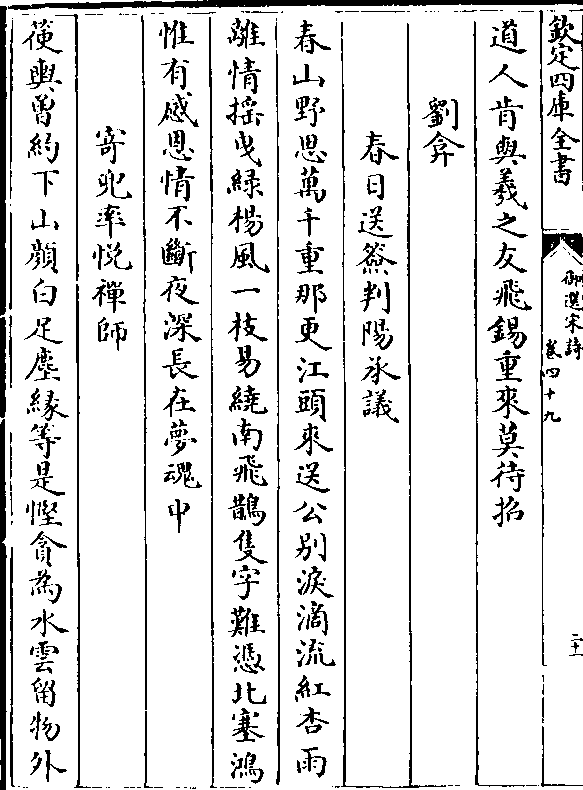 欽定四庫全書
御選宋詩
卷四十九
二十一
道人肯與羲之友飛錫重來莫待招
劉弇
春日送簽判陽承議
春山野思萬千重那更江頭來送公別淚滴流紅杏雨
離情搖曳緑楊風一枝易繞南飛鵲隻字難憑北塞鴻
惟有感恩情不斷夜深長在夢魂中
寄兜率悅禪師
篌輿曾約下山顛白足塵緣等是慳貪為水雲留物外